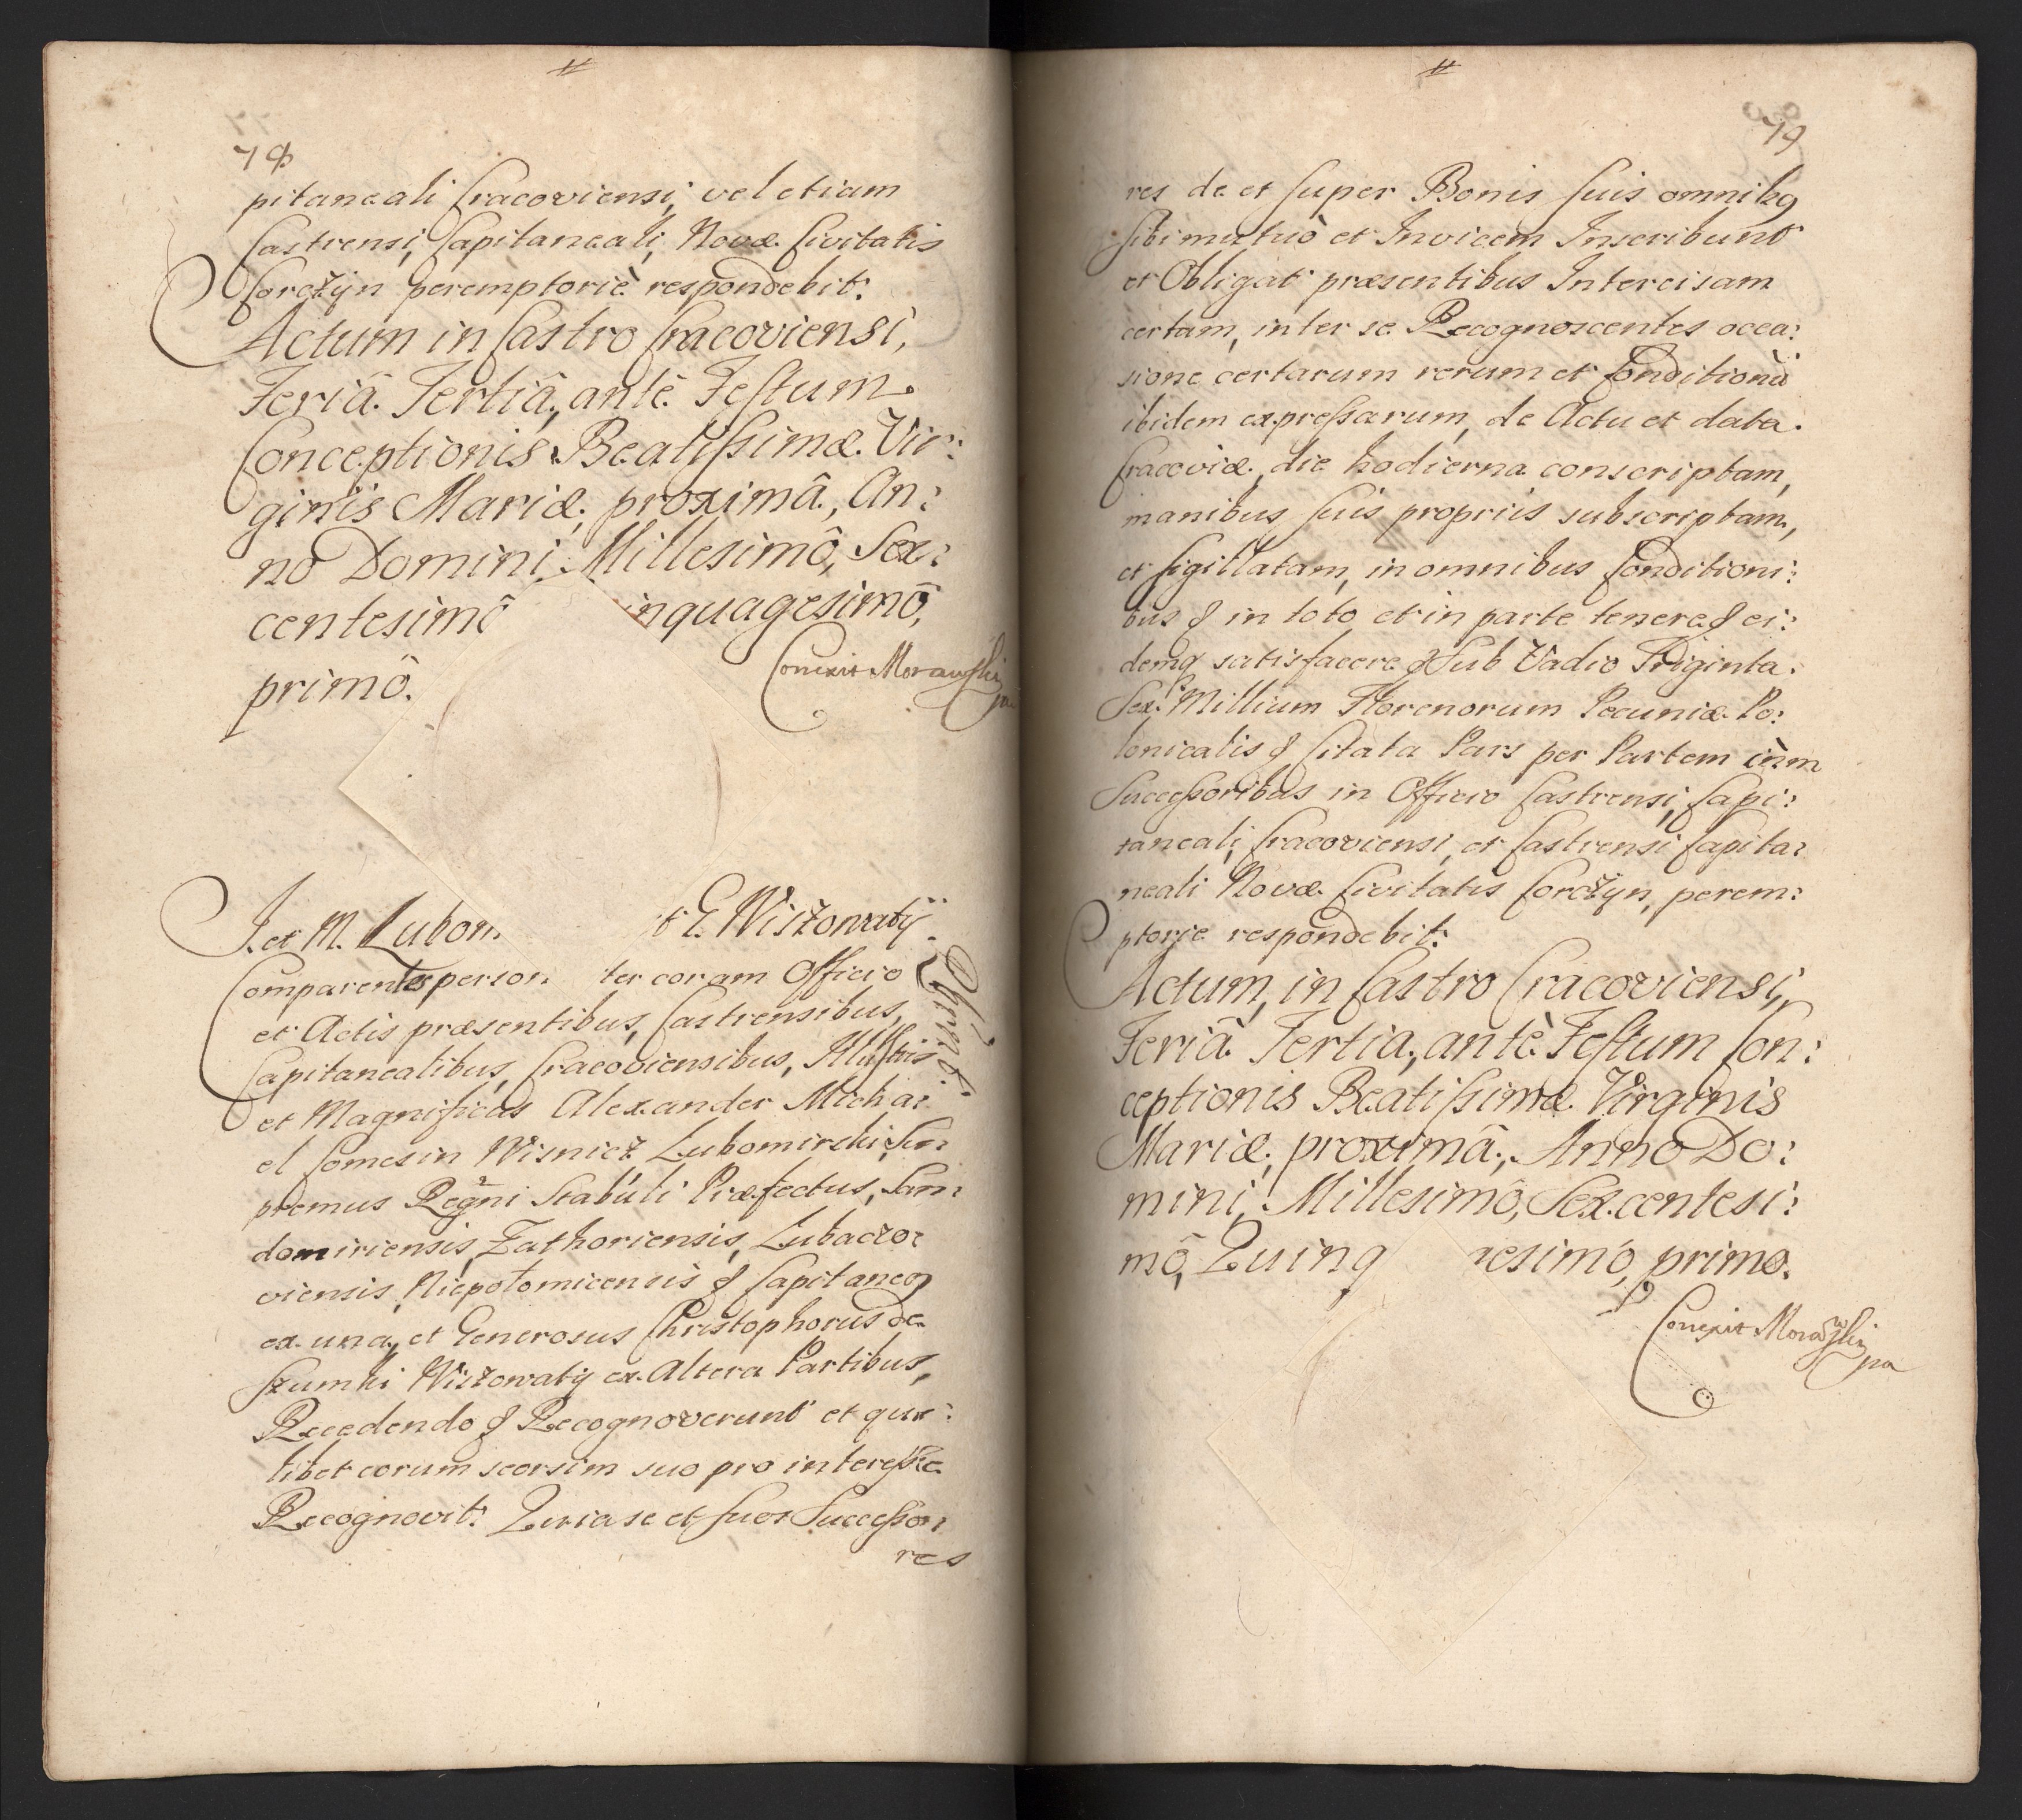 78
pitaneali Cracoviensi, vel etiam
Castrensi, Capitaneali, Novæ Civitatis
Corczÿn peremptoriè respondebit:
Actum in Castro Cracoviensi,
Feriâ Tertiâ, antè Festum
Conceptionis Beatissimæ Vir:
ginis Mariæ, proximâ, An:
no Domini Millesimô, Sex:
centesimô inquagesimô,
primô.
Conexit Morawski
J. et M. Lubom t G. Wiszowatÿ
Comparentes person ter coram Officio
et Actis præsentibus, Castrensibus,
Capitanealibus, Cracoviensibus, Illustris
et Magnificus Alexander Micha:
el Comes in Wisnicz Lubomirski, Su:
premus Regni Stabuli Præfectus, San:
domiriensis, Zathoriensis, Lubaczo:
viensis, Niepotomicensis & Capitaneq
ex una, et Generosus Christophorus de
Szumki Wiszowatÿ ex Altera Partibus,
Recedendo & Recognoverunt et quæ:
libet eorum seorsim suo pro interesse
Recognovit: Quia se et suos Successo:
res
79
res de et super Bonis suis omnibq
sibi mutuò et Invicem Inscribunt
et Obligat præsentibus Intercisam
certam, inter se Recognoscentes occa:
sione certarum rerum et Conditionũ
ibidem expressarum, de Actu et data
Cracoviæ, die hodierna conscriptam,
manibus suis propriis subscriptam,
et sigillatam, in omnibus Conditioni:
bus & in toto et in parte tenere & ei:
demq satisfacere & Sub Vadio Triginta
Sex Millium Florenorum Pecuniæ Po:
lonicalis & Citata Pars per Partem cùm
Successoribus in Officio Castrensi, Capi:
taneali, Cracoviensi, et Castrensi Capita:
neali Novæ Civitatis Corczÿn, perem:
ptorie respondebit:
Actum, in Castro Cracoviensi,
Feriâ Tertia, antè Festum Con:
ceptionis Beatissimæ Virginis
Mariæ, proximâ, Anno Do:
mini, Millesimô, Sexcentesi:
mô, Quinq esimó, primo.
Conexit Morawski
pa